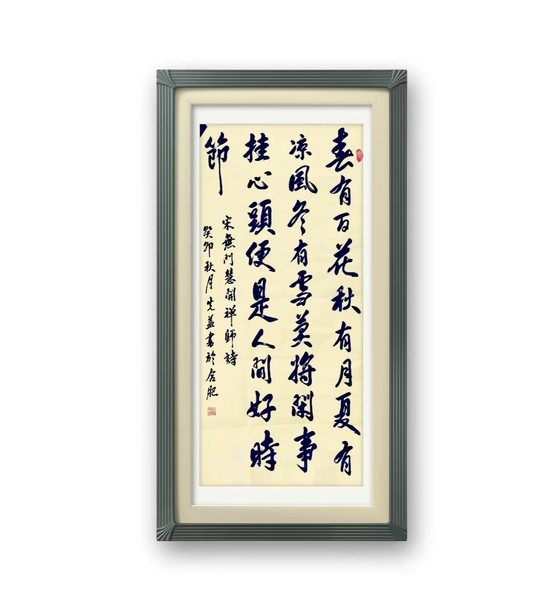 春有百花秋有月夏有
凉風冬有雪莫將闲事
挂心頭便是人間好時
節
宋無门慧開禅師詩
癸卯秋月先益書於合肥